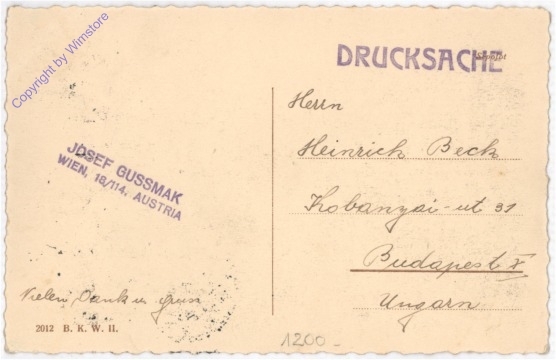 Copyright by Wimstore
DRUCKSACHE
JOSEF GUSSMAK
WIEN, 18/114, AUSTRIA
Vielen Dank u gruss
2012 B. K. W. II.
Herrn
Heinrich Beck
Kobanyai-ut 31
Budapest X
Ungarn
1200_